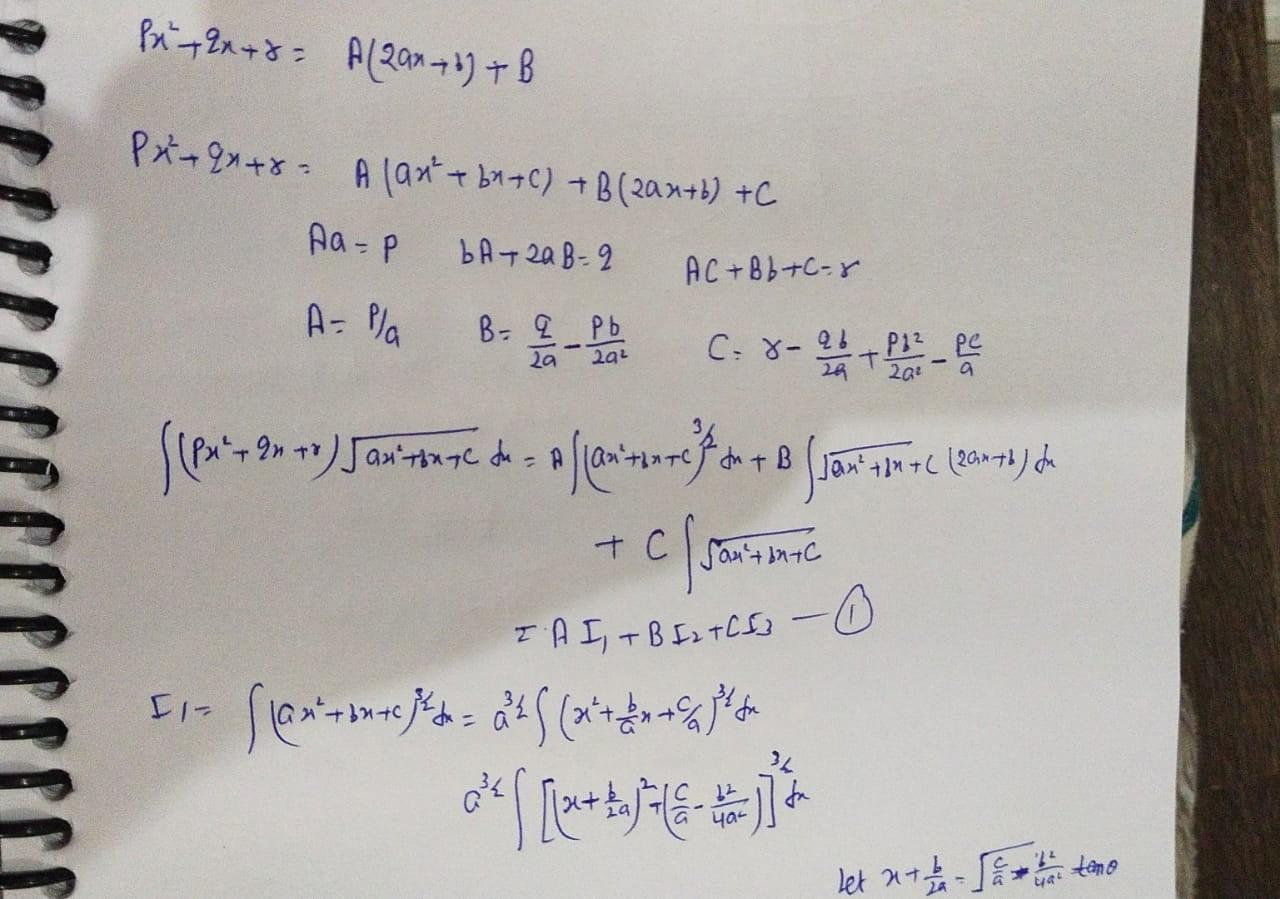 Px² + qx + r = A(2ax + b) + B
Px² + qx + r = A(ax² + bx + C) + B(2ax + b) + C
Aa = P bA + 2aB = q AC + Bb + C = r
A = P/a B = q/2a - Pb/2a² C = r - qb/2a + Pb²/2a² - PC/a
∫(Px² + qx + r)√(ax² + bx + C) dx = A∫(ax² + bx + C)^3/2 dx + B∫√(ax² + bx + C) (2ax + b) dx
+ C∫√(ax² + bx + C)
= A I₁ + B I₂ + C I₃ — ①
I₁ = ∫(ax² + bx + c)^3/2 dx = a^3/2 ∫(x² + b/a x + C/a)^3/2 dx
a^3/2 ∫[(x + b/2a)² + (C/a - b²/4a²)]^3/2 dx
Let x + b/2a = √(C/a - b²/4a²) tanθ